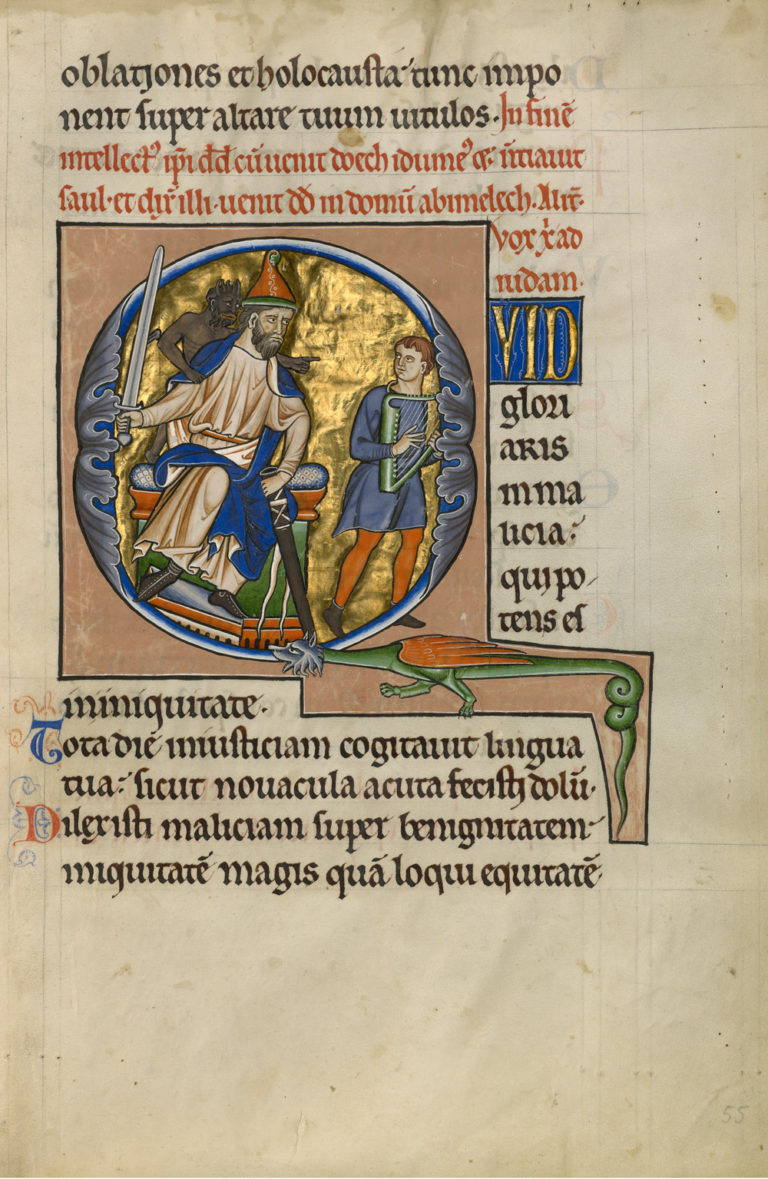 oblationes et holocausta· tunc inpo
nent super altare tuum uitulos. In finē
intellectꝰ ip̄i dd̄ cū uenit doech idumeꝰ & n̄tiauit
saul· et dix̄ illi· uenit dd̄ in domū abimelech· Alit̄·
vox x̄ ad
iudam·
Q VID
glori
aris
in ma
licia:
qui po
tens es
in iniquitate·
Tota die iniusticiam cogitauit lingua
tua: sicut nouacula acuta fecisti dolū·
Dilexisti maliciam super benignitatem·
iniquitatē magis quā loqui equitatē·
55